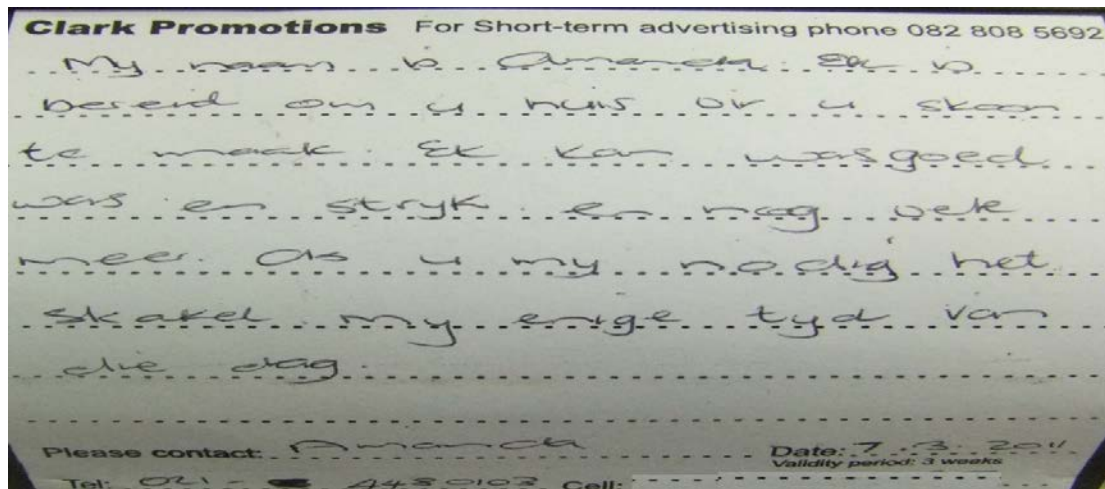 Clark Promotions For Short-term advertising phone 082 808 5692
My naam is Amanda. Ek is
bereid om u huis vir u skoon
te maak. Ek kan wasgoed
was en stryk en nog vele
meer. As u my nodig het
skakel my enige tyd van
die dag.
Please contact: Amanda Date: 7.3.2011
Validity period: 3 weeks
Tel: 021 - 4480103 Cell: